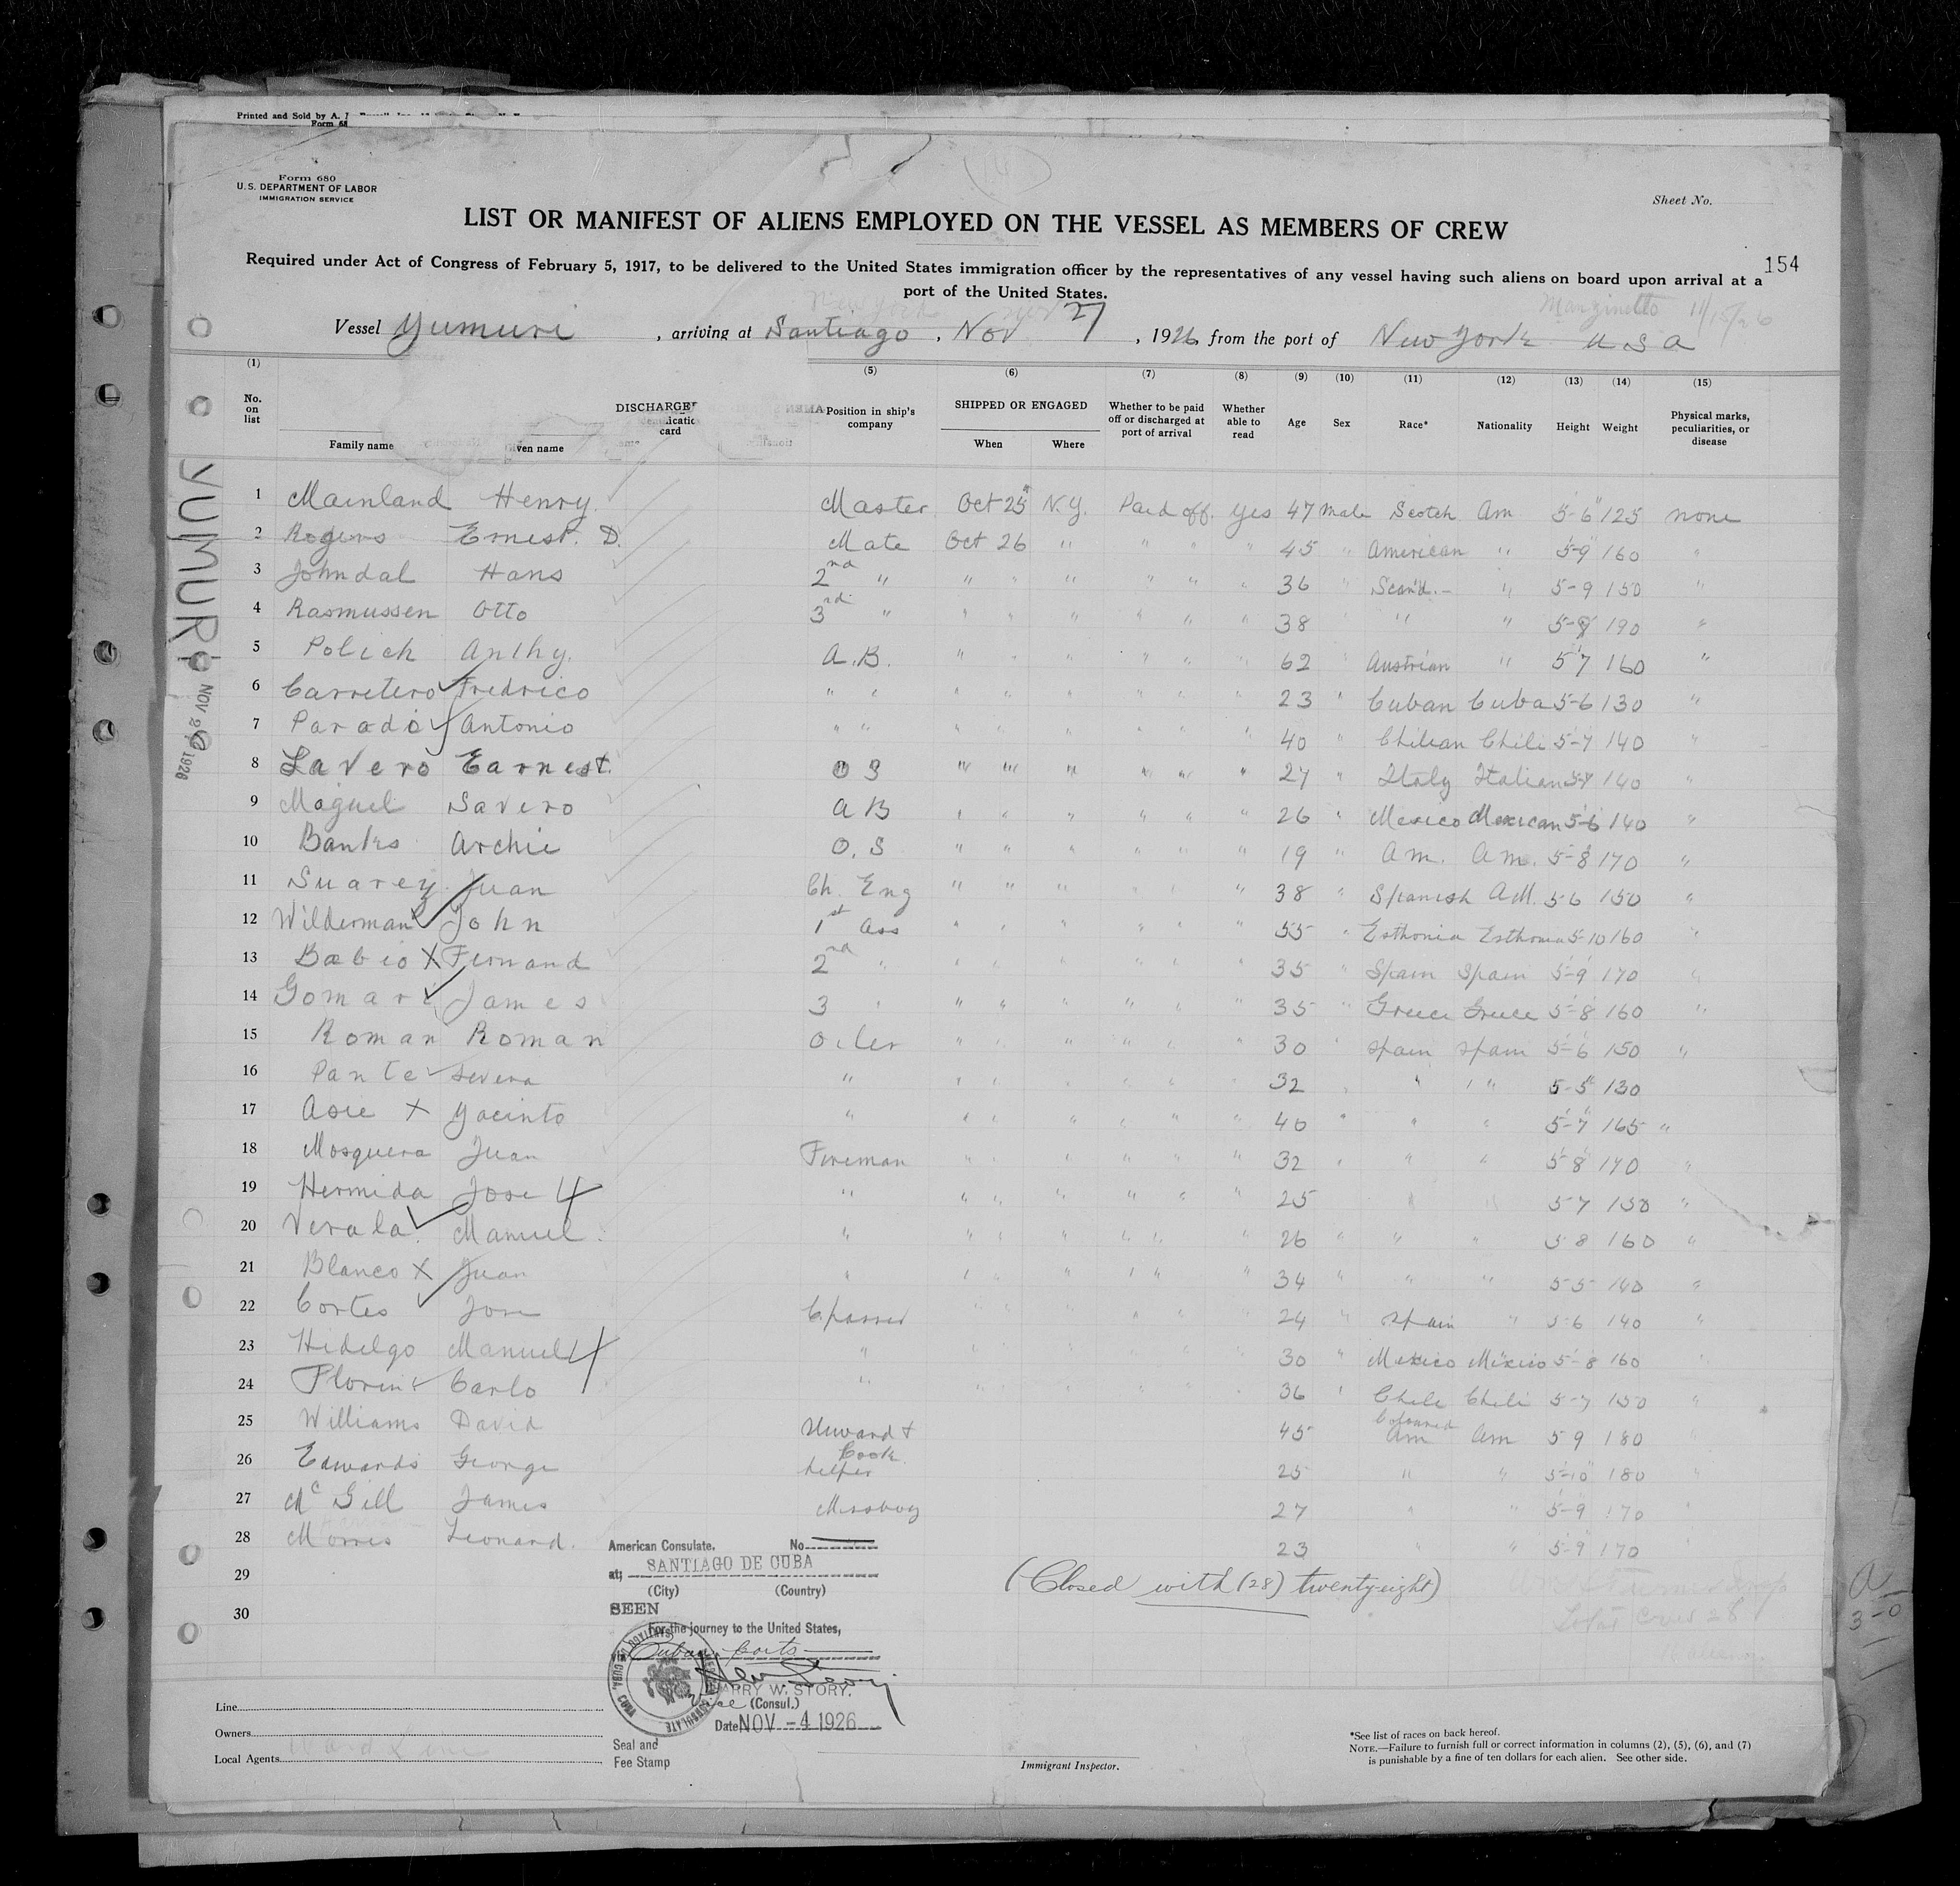 Printed and Sold by A.
Form 68
Form 680
U.S. DEPARTMENT OF LABOR
IMMIGRATION SERVICE
Sheet No.
LIST OR MANIFEST OF ALIENS EMPLOYED ON THE VESSEL AS MEMBERS OF CREW
154
Required under Act of Congress of February 5, 1917, to be delivered to the United States immigration officer by the representatives of any vessel having such aliens on board upon arrival at a
port of the United States.
New York 11/15/26
Vessel Yumuri, arriving at Santiago, Nov 27, 1926, from the port of New York U S A
(1) (5) (6) (7) (8) (9) (10) (11) (12) (13) (14) (15)
No. on list Family name Given name DISCHARGE card Position in ship's company SHIPPED OR ENGAGED When Where Whether to be paid off or discharged at port of arrival Whether able to read Age Sex Race* Nationality Height Weight Physical marks, peculiarities, or disease
YUMURI
NOV 2 1926
1 Mainland Henry. Master Oct 25 N.Y. Paid off. Yes 47 Male Scotch Am 5-6 125 none
2 Rogers Ernest. D. Mate Oct 26 " " " " 45 " American " 5-9 160 "
3 Johndal Hans 2nd " " " " " " " 36 " Scan'd.- " 5-9 150 "
4 Rasmussen Otto 3rd " " " " " " " 38 " " " 5-9 190 "
5 Polich Anthy. A.B. " " " " " " 62 " Austrian " 5 7 160 "
6 Carretero Fredrico " " " " " " " " 23 " Cuban Cuba 5-6 130 "
7 Parado Antonio " " " " " " " " 40 " Chilean Chili 5-7 140 "
8 Lavero Earnest. O S " " " " " " 27 " Italy Italian 5-8 140 "
9 Maguel Savero A B " " " " " " 26 " Mexico Mexican 5-6 140 "
10 Banks Archie O. S " " " " " " 19 " Am. Am. 5-8 170 "
11 Suarey Juan Ch. Eng " " " " " " 38 " Spanish AM. 5 6 150 "
12 Wilderman John 1st Ass " " " " " " 55 " Esthonia Esthonia 5-10 160 "
13 Babio X Fernand 2nd " " " " " " " 35 " Spain Spain 5-9 170 "
14 Gomari James 3 " " " " " " " 35 " Greece Greece 5-8 160 "
15 Roman Roman Oiler " " " " " " 30 " Spain Spain 5-6 150 "
16 Pante Severa " " " " " " 32 " " " 5-5 130
17 Asie X Yacinto " " " " " " " 40 " " " 5-7 165 "
18 Mosquera Juan Fireman " " " " " " 32 " " " 5 8 170 "
19 Hermida Jose " " " " " " " 25 " " 5 7 150 "
20 Verala Manuel " " " " " " " 26 " " " 5 8 160 "
21 Blanco X Juan " " " " " " " 34 " " " 5-5 140 "
22 Cortes Jose Cpasser " " " " " 24 " Spain " 5-6 140 "
23 Hidelgo Manuel " " " " " " " 30 " Mexico Mexico 5-8 160 "
24 Florin Carlo " " " " " " " 36 " Chile Chili 5-7 150 "
25 Williams David Steward & Cook 45 Coloured Am Am 5 9 180
26 Edwards George helper 25 " " 5-10 180 "
27 McGill James Messboy 27 " " 5-9 170 "
28 Morris Leonard. 23 " " 5-9 170 "
29
30
(Closed with (28) twenty-eight)
Total Crew 28
American Consulate. No
at; SANTIAGO DE CUBA
(City) (Country)
SEEN
For the journey to the United States,
Cuban ports
HARRY W. STORY.
Vice (Consul.)
Date NOV -4 1926
Seal and
Fee Stamp
Line
Owners
Local Agents Ward Line
Immigrant Inspector.
*See list of races on back hereof.
NOTE.—Failure to furnish full or correct information in columns (2), (5), (6), and (7)
is punishable by a fine of ten dollars for each alien. See other side.